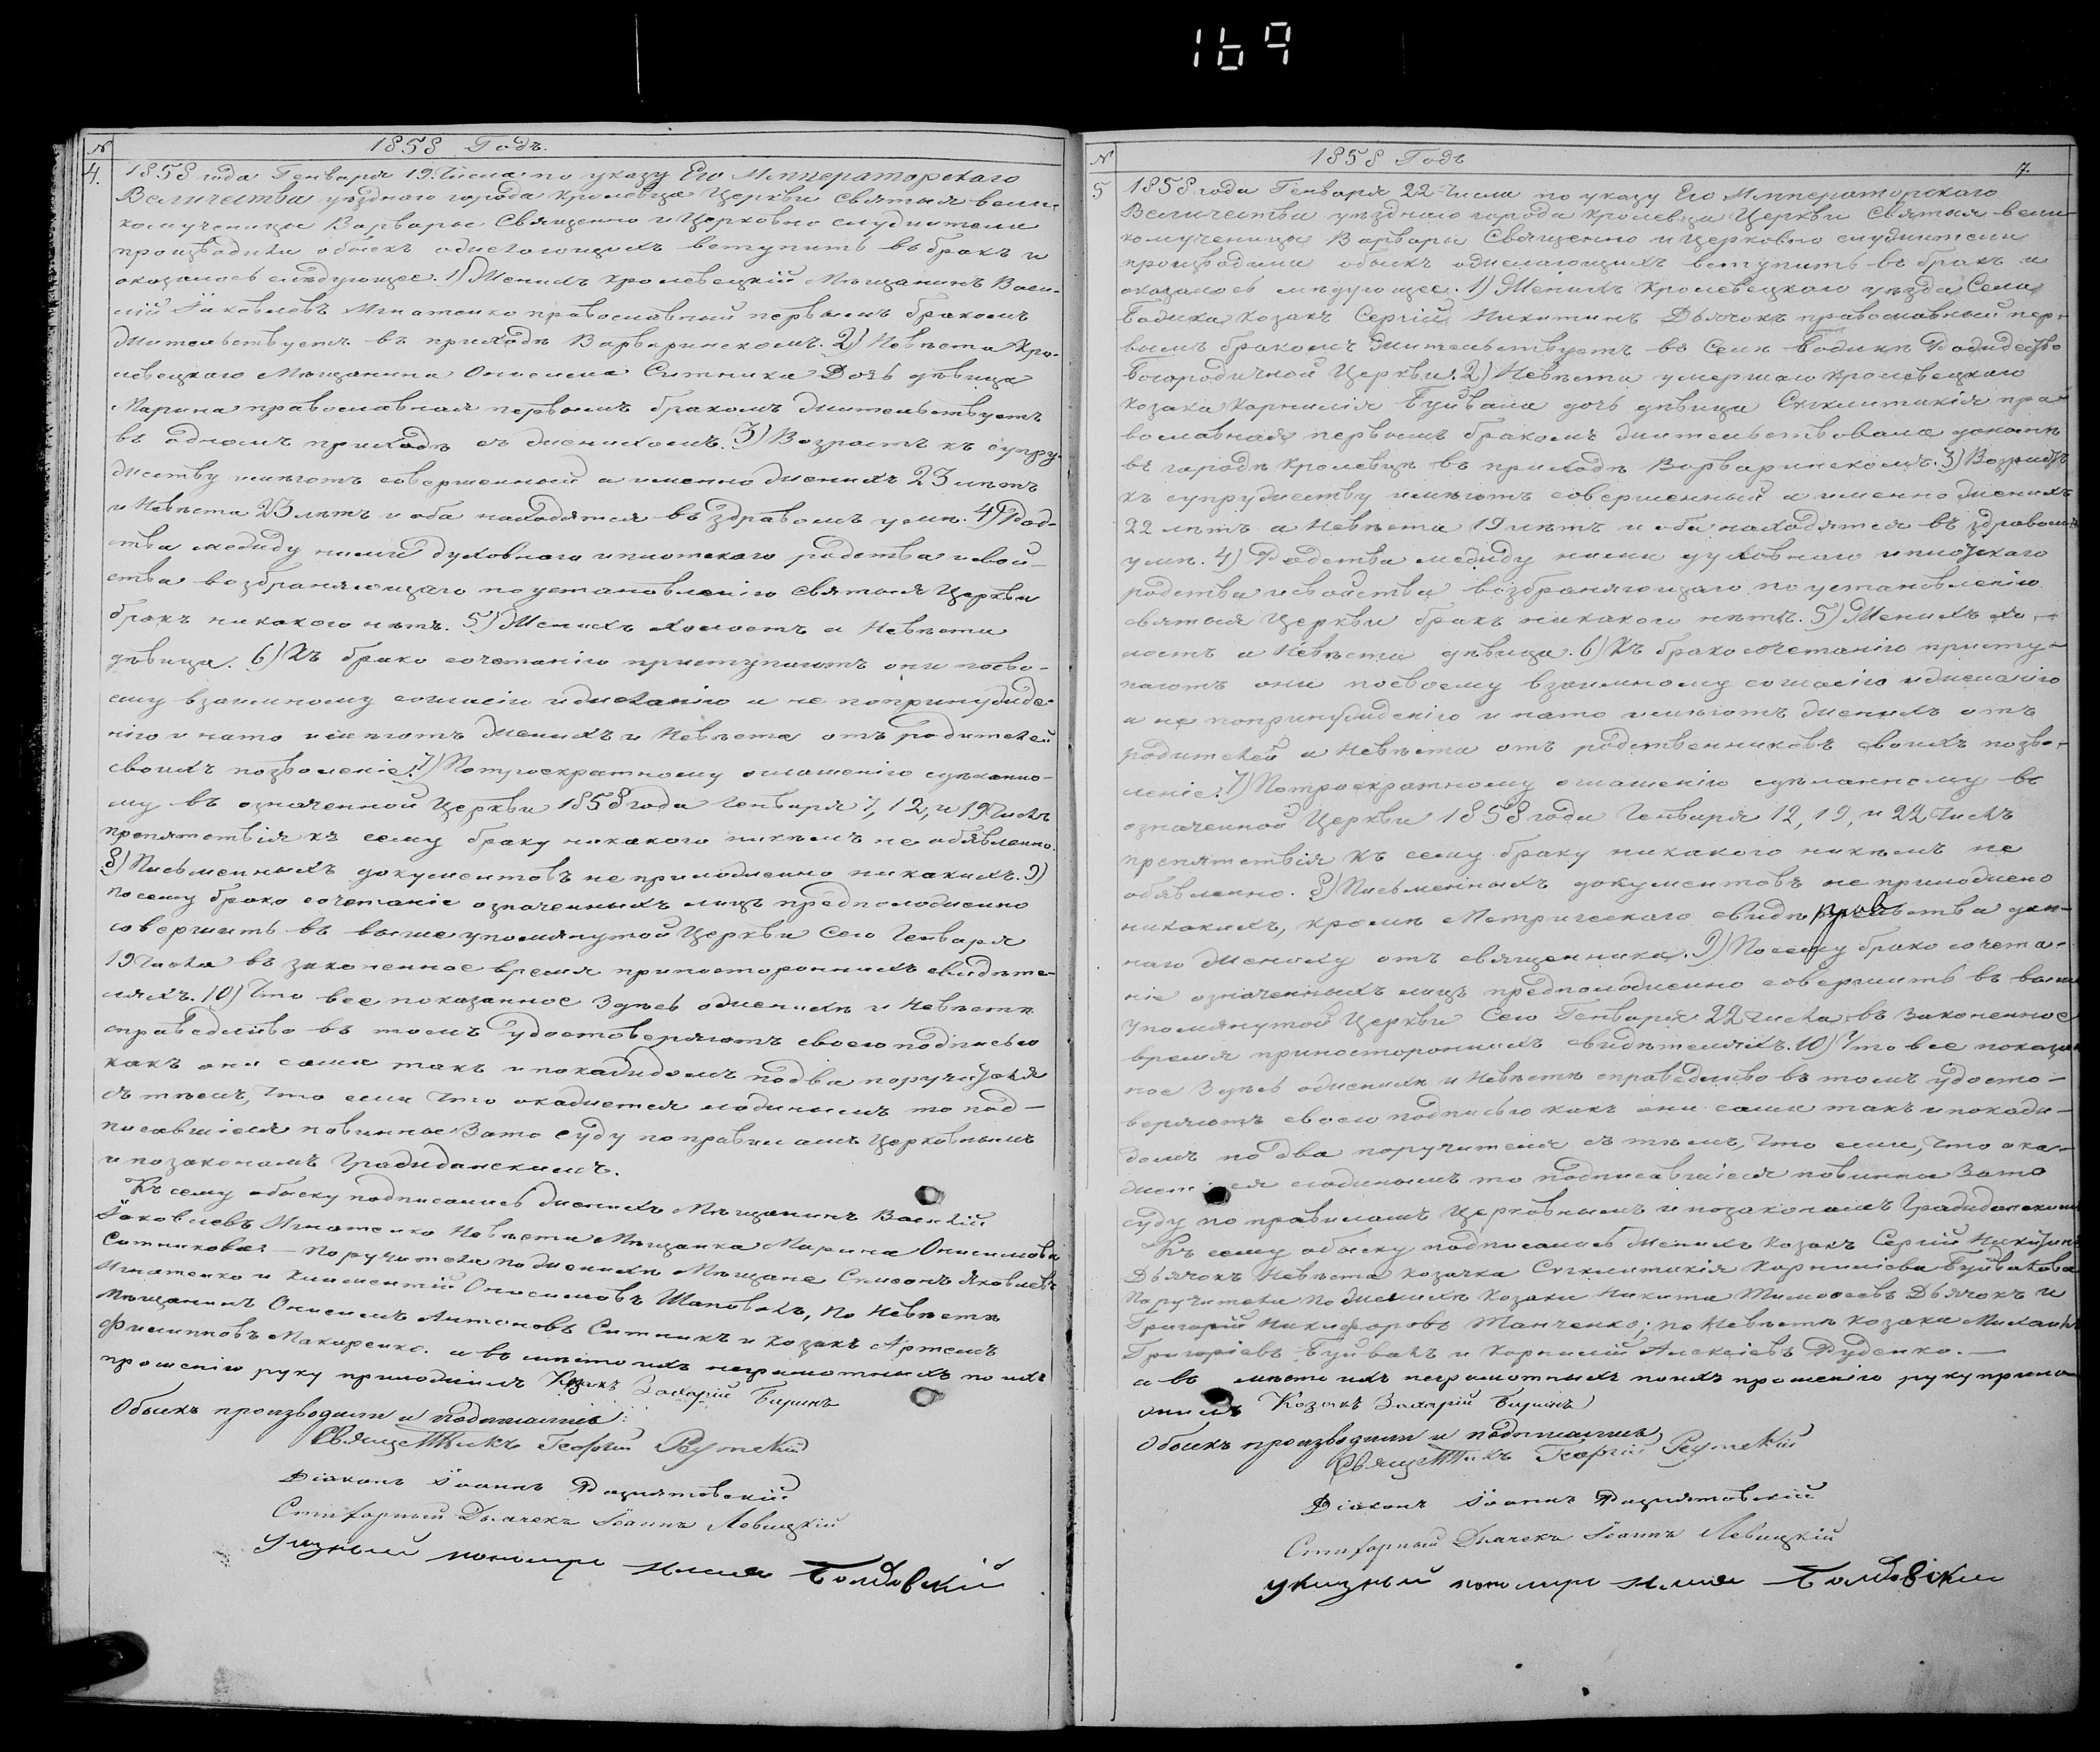 169
№ 1858 Годъ.
4. 1858 года Генваря 19. Числа по указу Его Императорскаго
Величества уѣзднаго города Кролевца Церкви Святыя вели-
комученицы Варвары Священно и Церковно служители
производили обыскъ о желающихъ вступить въ бракъ и
оказалось слѣдующее. 1) Женихъ Кролевецкій Мѣщанинъ Васи-
лій Іаковлевъ Игнатенко православный первымъ бракомъ
жительствуетъ въ приходѣ Варваринскомъ. 2) Невѣста Кро-
левецкаго Мѣщанина Онисима Ситника Дочь дѣвица
Марина православная первымъ бракомъ жительствуетъ
въ одномъ приходѣ съ женихомъ. 3) Возрастъ къ супру-
жеству имѣютъ совершенный а именно женихъ 23 лѣтъ
и Невѣста 23 лѣтъ и оба находятся въ здравомъ умѣ. 4) Род-
ства между ними духовнаго и плотскаго родства и свой-
ства возбраняющаго по установленію Святыя Церкви
бракъ никакого нѣтъ. 5) Женихъ холостъ а Невѣста
дѣвица. 6) Къ брако сочетанію приступаютъ они по сво-
ему взаимному согласію и желанію а не по принужде-
нію и на то имѣютъ женихъ и Невѣста отъ родителей
своихъ позволеніе. 7) По троекратному оглашенію сдѣланно-
му въ означенной Церкви 1858 года Генваря 7, 12, и 19 Числъ
препятствія къ сему браку никакого никѣмъ не объявленно.
8) Письменныхъ документовъ не приложенно никакихъ. 9)
По сему брако сочетаніе означенныхъ лицъ предположенно
совершить въ выше упомянутой Церкви Сего Генваря
19 числа въ законенное время при постороннихъ свидѣте-
ляхъ. 10) Что все показанное здѣсь о женихѣ и Невѣстѣ
справедливо въ томъ удостоверяютъ своею подписью
какъ они сами такъ и по каждомъ по два поручителя
съ тѣмъ, что если что окажется ложнымъ то под-
писавшіеся повинны за то суду по правиламъ Церковнымъ
и по законамъ Гражданскимъ.
Къ сему обыску подписались женихъ Мѣщанинъ Василій
Іаковлевъ Игнатенко Невѣста Мѣщанка Марина Онисимова
Ситникова — Поручители по женихѣ Мѣщане Симеонъ Яковлевъ
Игнатенко и Климентій Онисимовъ Шаповалъ, по Невѣстѣ
Мѣщанинъ Онисимъ Антоновъ Ситникъ и козакъ Артемъ
Филипповъ Макаренко. а вмѣсто ихъ неграмотныхъ по ихъ
прошенію руку приложилъ Козакъ Захарій Биринъ
Обыскъ производили и подписались:
Священникъ Георгій Реутскій
Діаконъ Іоаннъ
Стихарный Дьячекъ Іоаннъ Левицкій
Указный пономарь Илия
№ 1858 Годъ 7.
5 1858 года Генваря 22 Числа по указу Его Императорскаго
Величества уѣзднаго города Кролевца Церкви Святыя вели-
комученицы Варвары Священно и Церковно служители
производили обыскъ о желающихъ вступить въ бракъ и
оказалось слѣдующее. 1) Женихъ Кролевецкаго уѣзда Села
Козакъ Сергій Никитинъ Дьячокъ православный пер-
вымъ бракомъ жительствуетъ въ Селѣ Рождество
Богородичной Церкви. 2) Невѣста умершаго Кролевецкаго
козака Корнилія Буйвала дочь дѣвица Сигклитикія пра-
вославная первымъ бракомъ жительствовала
въ городѣ Кролевцѣ въ приходѣ Варваринскомъ. 3) Возрастъ
къ супружеству имѣютъ совершенный а именно женихъ
22 лѣтъ а Невѣста 19 лѣтъ и оба находятся въ здравомъ
умѣ. 4) Родства между ними духовнаго и плотскаго
родства и свойства возбраняющаго по установленію
святыя Церкви бракъ никакого нѣтъ. 5) Женихъ хо-
лостъ а Невѣста дѣвица. 6) Къ брако сочетанію присту-
паютъ они по своему взаимному согласію и желанію
а не по принужденію и на то имѣютъ женихъ отъ
родителей а Невѣста отъ родственниковъ своихъ позво-
леніе. 7) По троекратному оглашенію сдѣланному въ
означенной Церкви 1858 года Генваря 12, 19, и 22 Числъ
препятствія къ сему браку никакого никѣмъ не
объявленно. 8) Письменныхъ документовъ не приложено
никакихъ, кромѣ Метрическаго свидѣтельства дан-
наго жениху отъ священника. 9) По сему брако сочета-
ніе означенныхъ лицъ предположенно совершить въ выше
упомянутой Церкви Сего Генваря 22 числа въ законенное
время при постороннихъ свидѣтеляхъ. 10) Что все показан
ное здѣсь о женихѣ и Невѣстѣ справедливо въ томъ удосто-
веряютъ своею подписью какъ они сами такъ и по каж-
домъ по два поручителя съ тѣмъ, что если, что ока-
жется ложнымъ то подписавшіеся повинны за то
суду по правиламъ Церковнымъ и по законамъ Гражданскимъ
Къ сему обыску подписались Женихъ козакъ Сергій Никитинъ
Дьячокъ Невѣста козачка Сигклитикія Корниліева Буйвалова
Поручители по женихѣ козаки Никита Тимофеевъ Дьячокъ и
Григорій Никифоровъ Танченко; по Невѣстѣ козаки Михаилъ
Григоріевъ Буйвалъ и Корнилій Алексіевъ Руденко. —
а вмѣсто ихъ неграмотныхъ по ихъ прошенію руку прило
жилъ Козакъ Захарій Биринъ
Обыскъ производили и подписались
Священникъ Георгій Реутскій
Діаконъ Іоаннъ
Стихарный Дьячекъ Іоаннъ Левицкій
Указный пономарь Илия